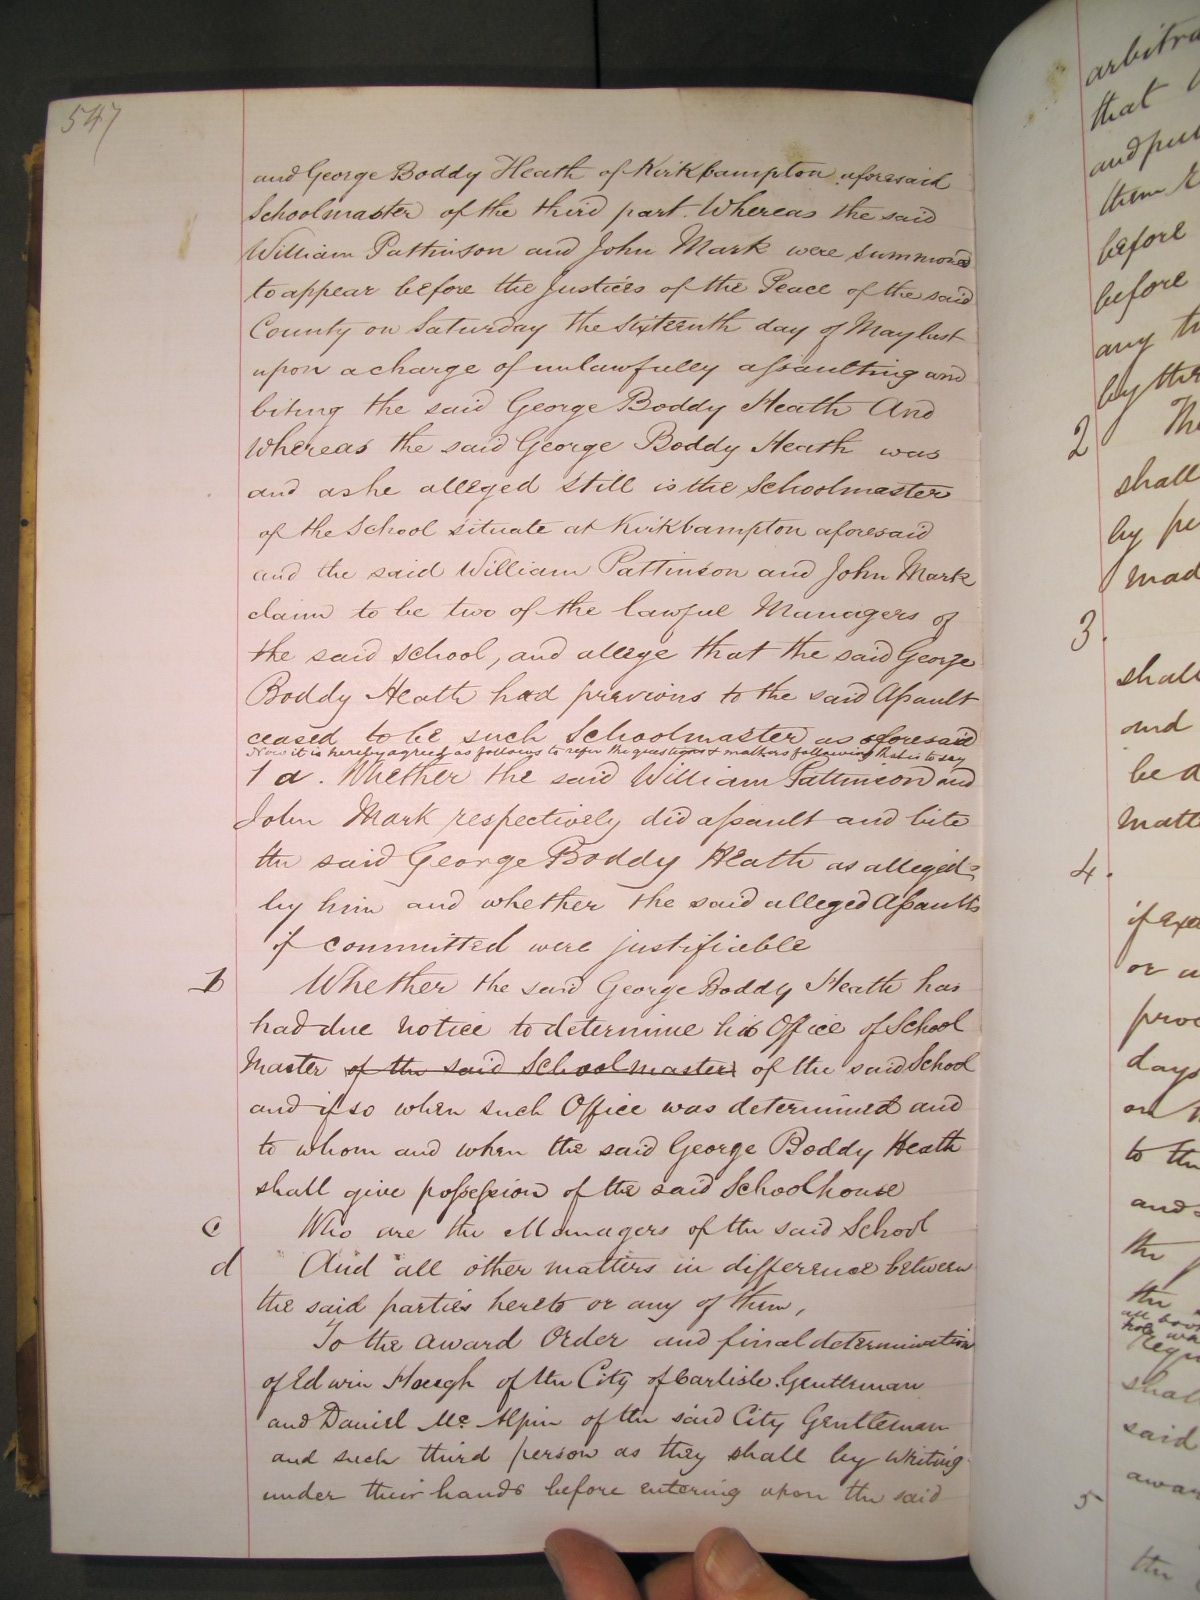 547
and George Boddy Heath of Kirkbampton aforesaid
Schoolmaster of the third part. Whereas the said
William Pattinson and John Mark were summoned
to appear before the Justices of the Peace of the said
County on Saturday the Sixteenth day of May last
upon a charge of unlawfully assaulting and
biting the said George Boddy Heath And
Whereas the said George Boddy Heath was
and as he alleged still is the Schoolmaster
of the School situate at Kirkbampton aforesaid
and the said William Pattinson and John Mark
claim to be two of the lawful Managers of
the said school, and allege that the said George
Boddy Heath had previous to the said Assault
ceased to be such Schoolmaster as aforesaid
Now it is hereby agreed as follows to refer the questions & matters following that is to say
1 a. Whether the said William Pattinson and
John Mark respectively did assault and bite
the said George Boddy Heath as alleged
by him and whether the said alleged Assaults
if committed were justifiable
b Whether the said George Boddy Heath has
had due notice to determine his Office of School
Master of the said Schoolmaster of the said School
and if so when such Office was determined and
to whom and when the said George Boddy Heath
shall give possession of the said Schoolhouse
c Who are the Managers of the said School
d And all other matters in difference between
the said parties hereto or any of them,
To the award Order and final determination
of Edwin Hough of the City of Carlisle Gentleman
and Daniel Mc Alpin of the said City Gentleman
and such third person as they shall by writing
under their hands before entering upon the said
that
before
before
any
2
shall
by
3.
and
4.
or
days
on
to the
and
the
the
said
5
the